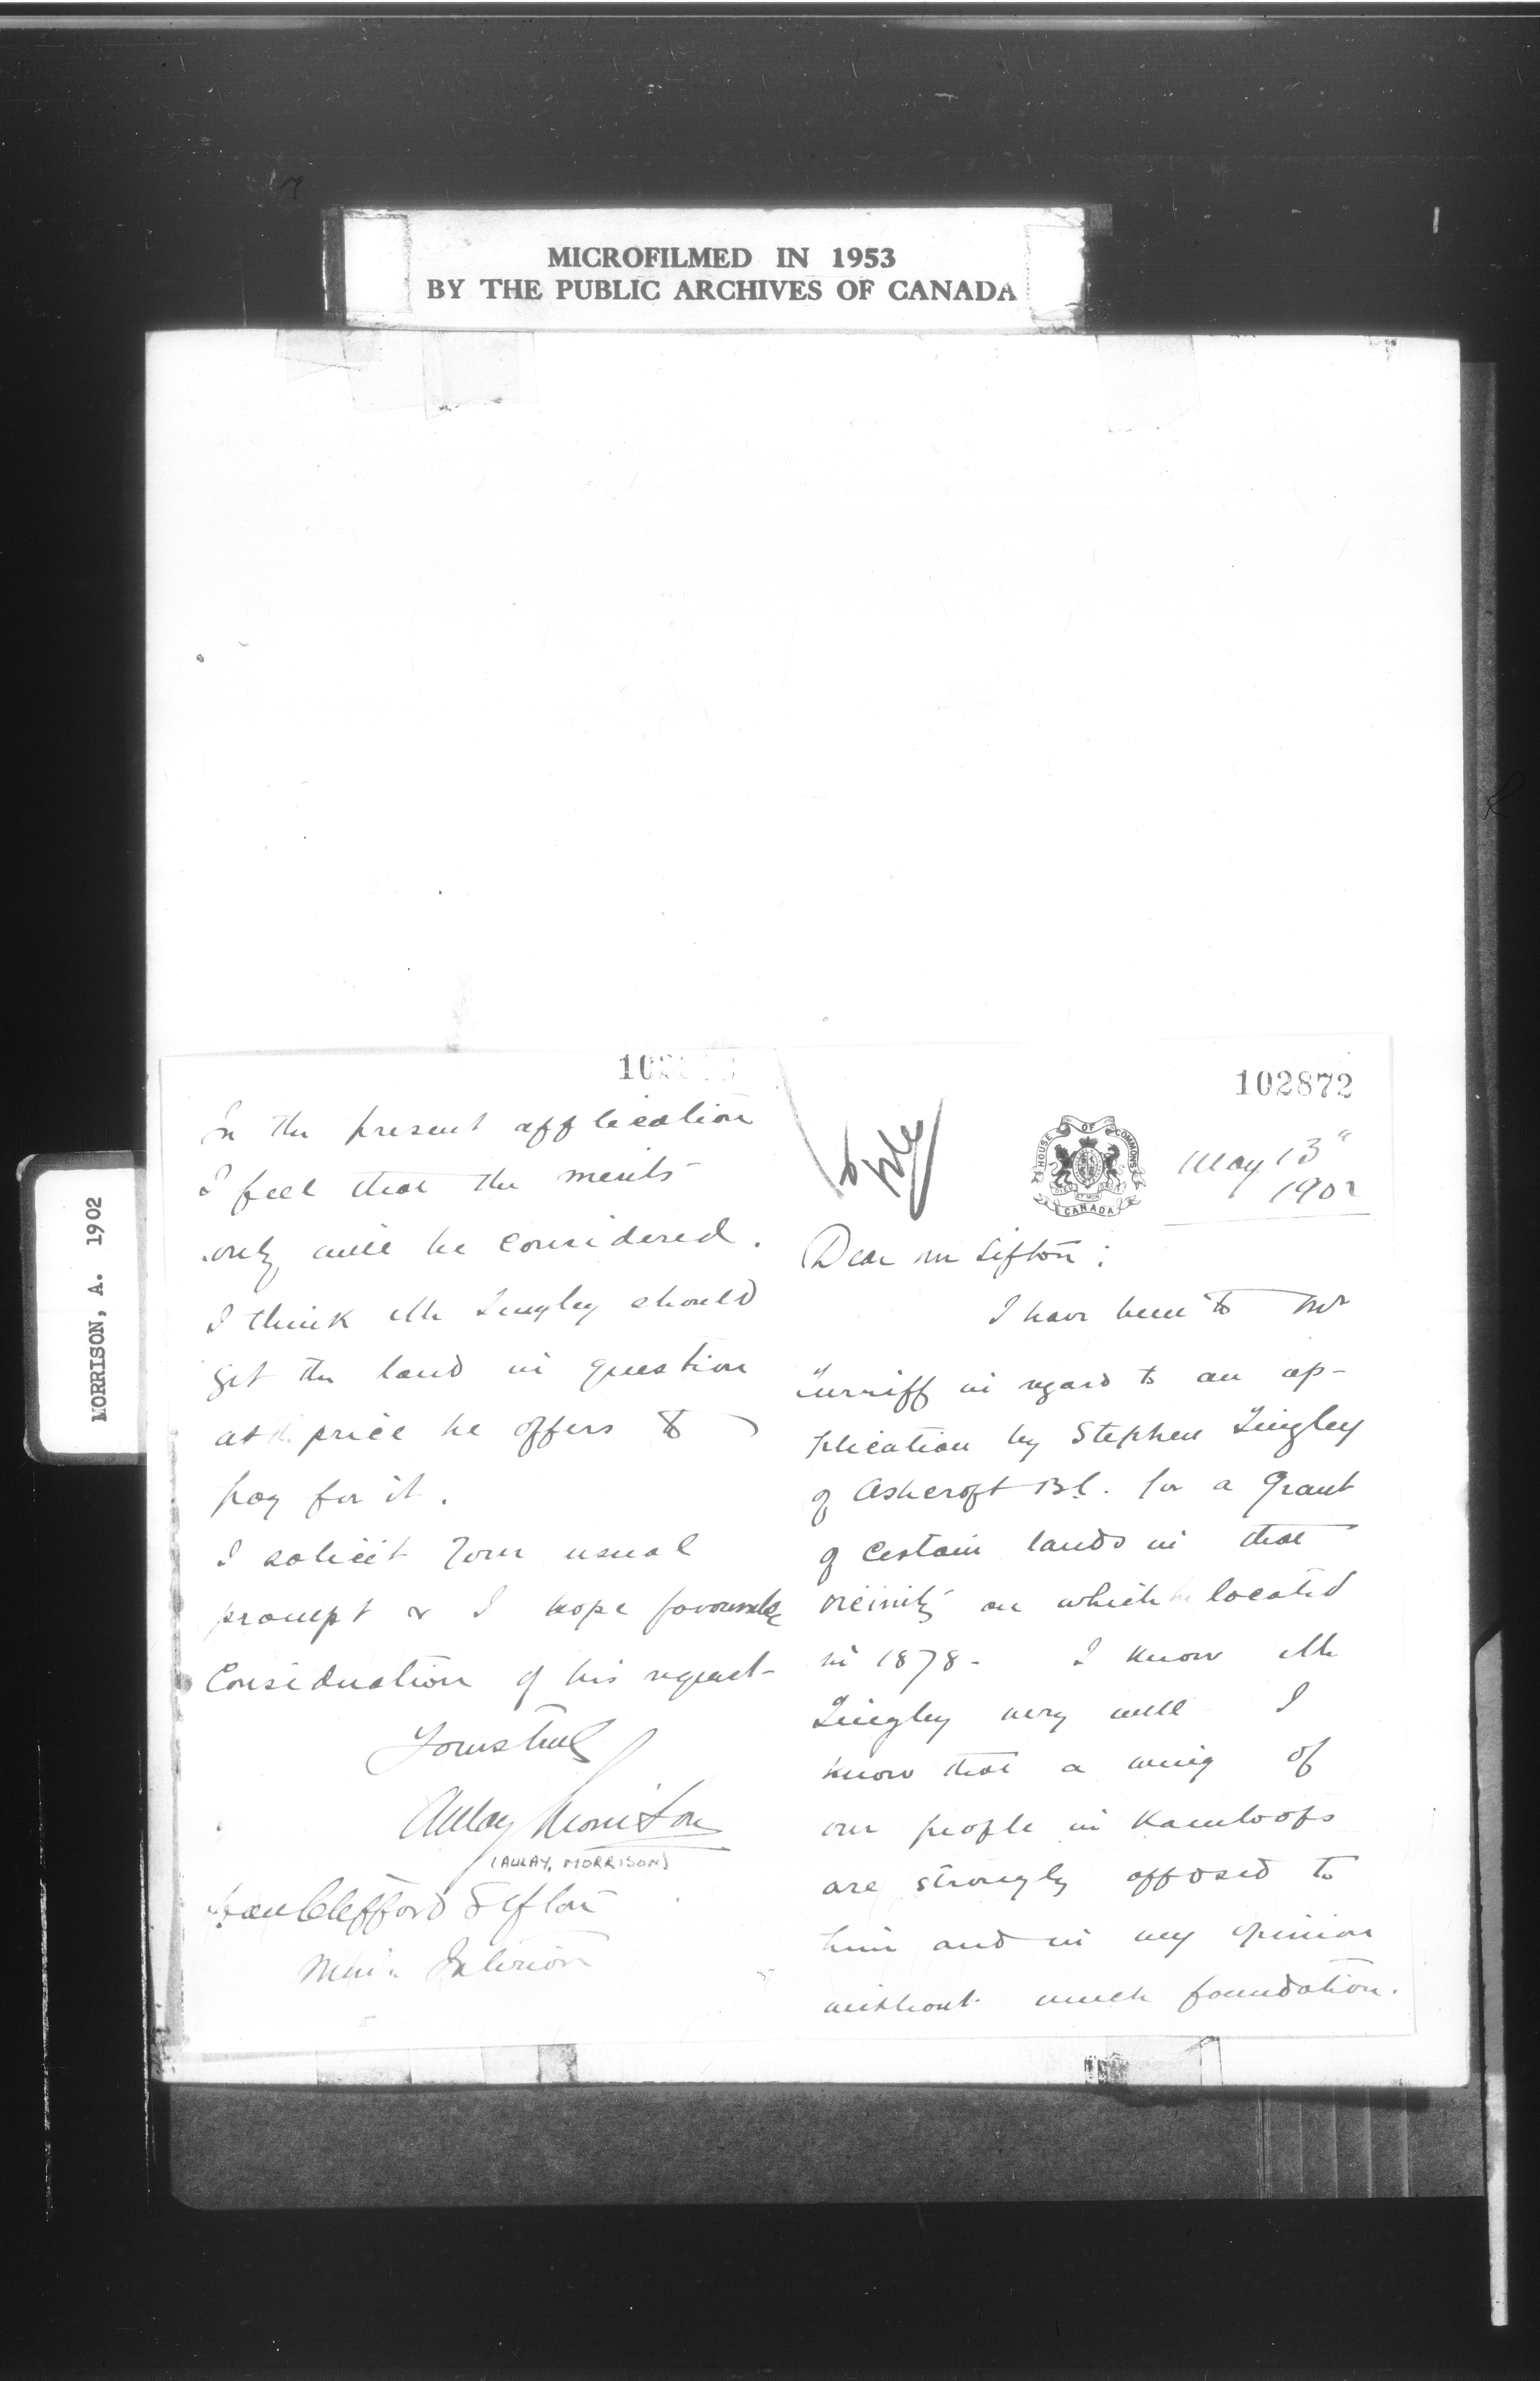 MICROFILMED IN 1953
BY THE PUBLIC ARCHIVES OF CANADA
MORRISON, A. 1902
102872
HOUSE OF COMMONS
CANADA
May 13"
1902
Dear Mr Sifton;
I have been to Mr
Turriff in regard to an ap-
plication by Stephen Tingley
of Ashcroft B.C. for a Grant
of certain lands in that
vicinity on which he located
in 1878- I know Mr
Tingley very well I
know that a wing of
our people in Kamloops
are strongly opposed to
him and in my opinion
without much foundation.
In the present application
I feel that the merits
only will be considered.
I think Mr Tingley should
get the land in question
at price he offers to
pay for it.
I solicit your usual
prompt & I hope favourable
Consideration of his request-
Yours truly
Aulay Morrison
(AULAY, MORRISON)
Hon Clifford Sifton
Min. Interior